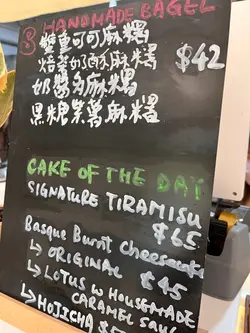 HANDMADE BAGEL
雙重可可麻糬
焙茶奶酥麻糬 $42
奶醬多麻糬
黑糖紫薯麻糬
CAKE OF THE DAY
SIGNATURE TIRAMISU
$65
Basque Burnt Cheesecake
↳ ORIGINAL $45
↳ LOTUS W HOUSEMADE
CARAMEL SAUCE
↳ HOJICHA